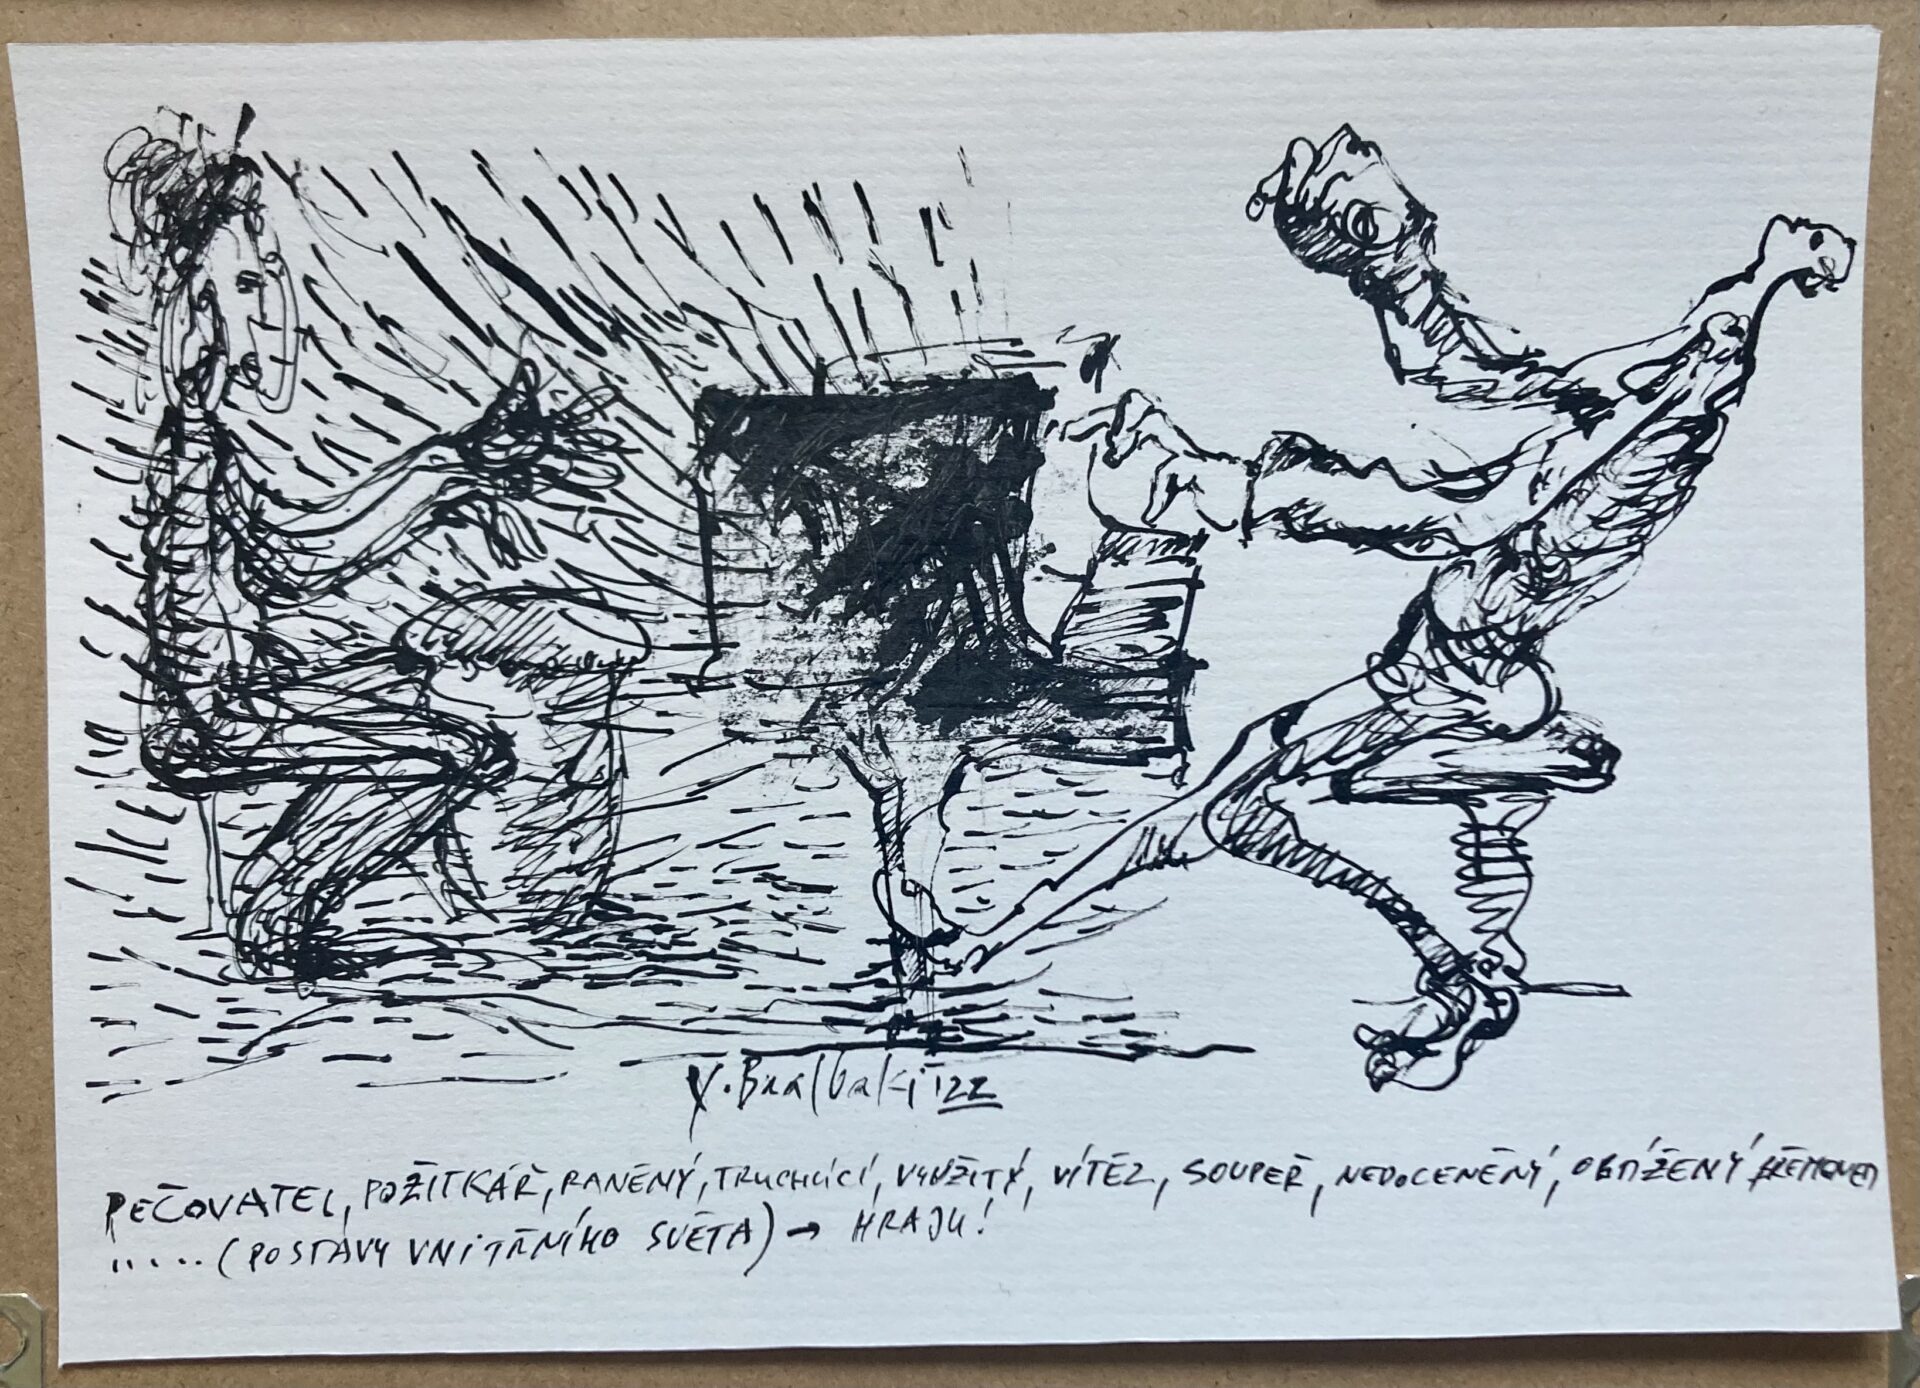 PEČOVATEL, POŽITKÁŘ, RANĚNÝ, TRUCHLÍCÍ, VYUŽITÝ, VÍTĚZ, SOUPEŘ, NEDOCENĚNÝ, OBTÍŽENÝ BŘEMENEM
..... (POSTAVY VNITŘNÍHO SVĚTA) → HRAJU!